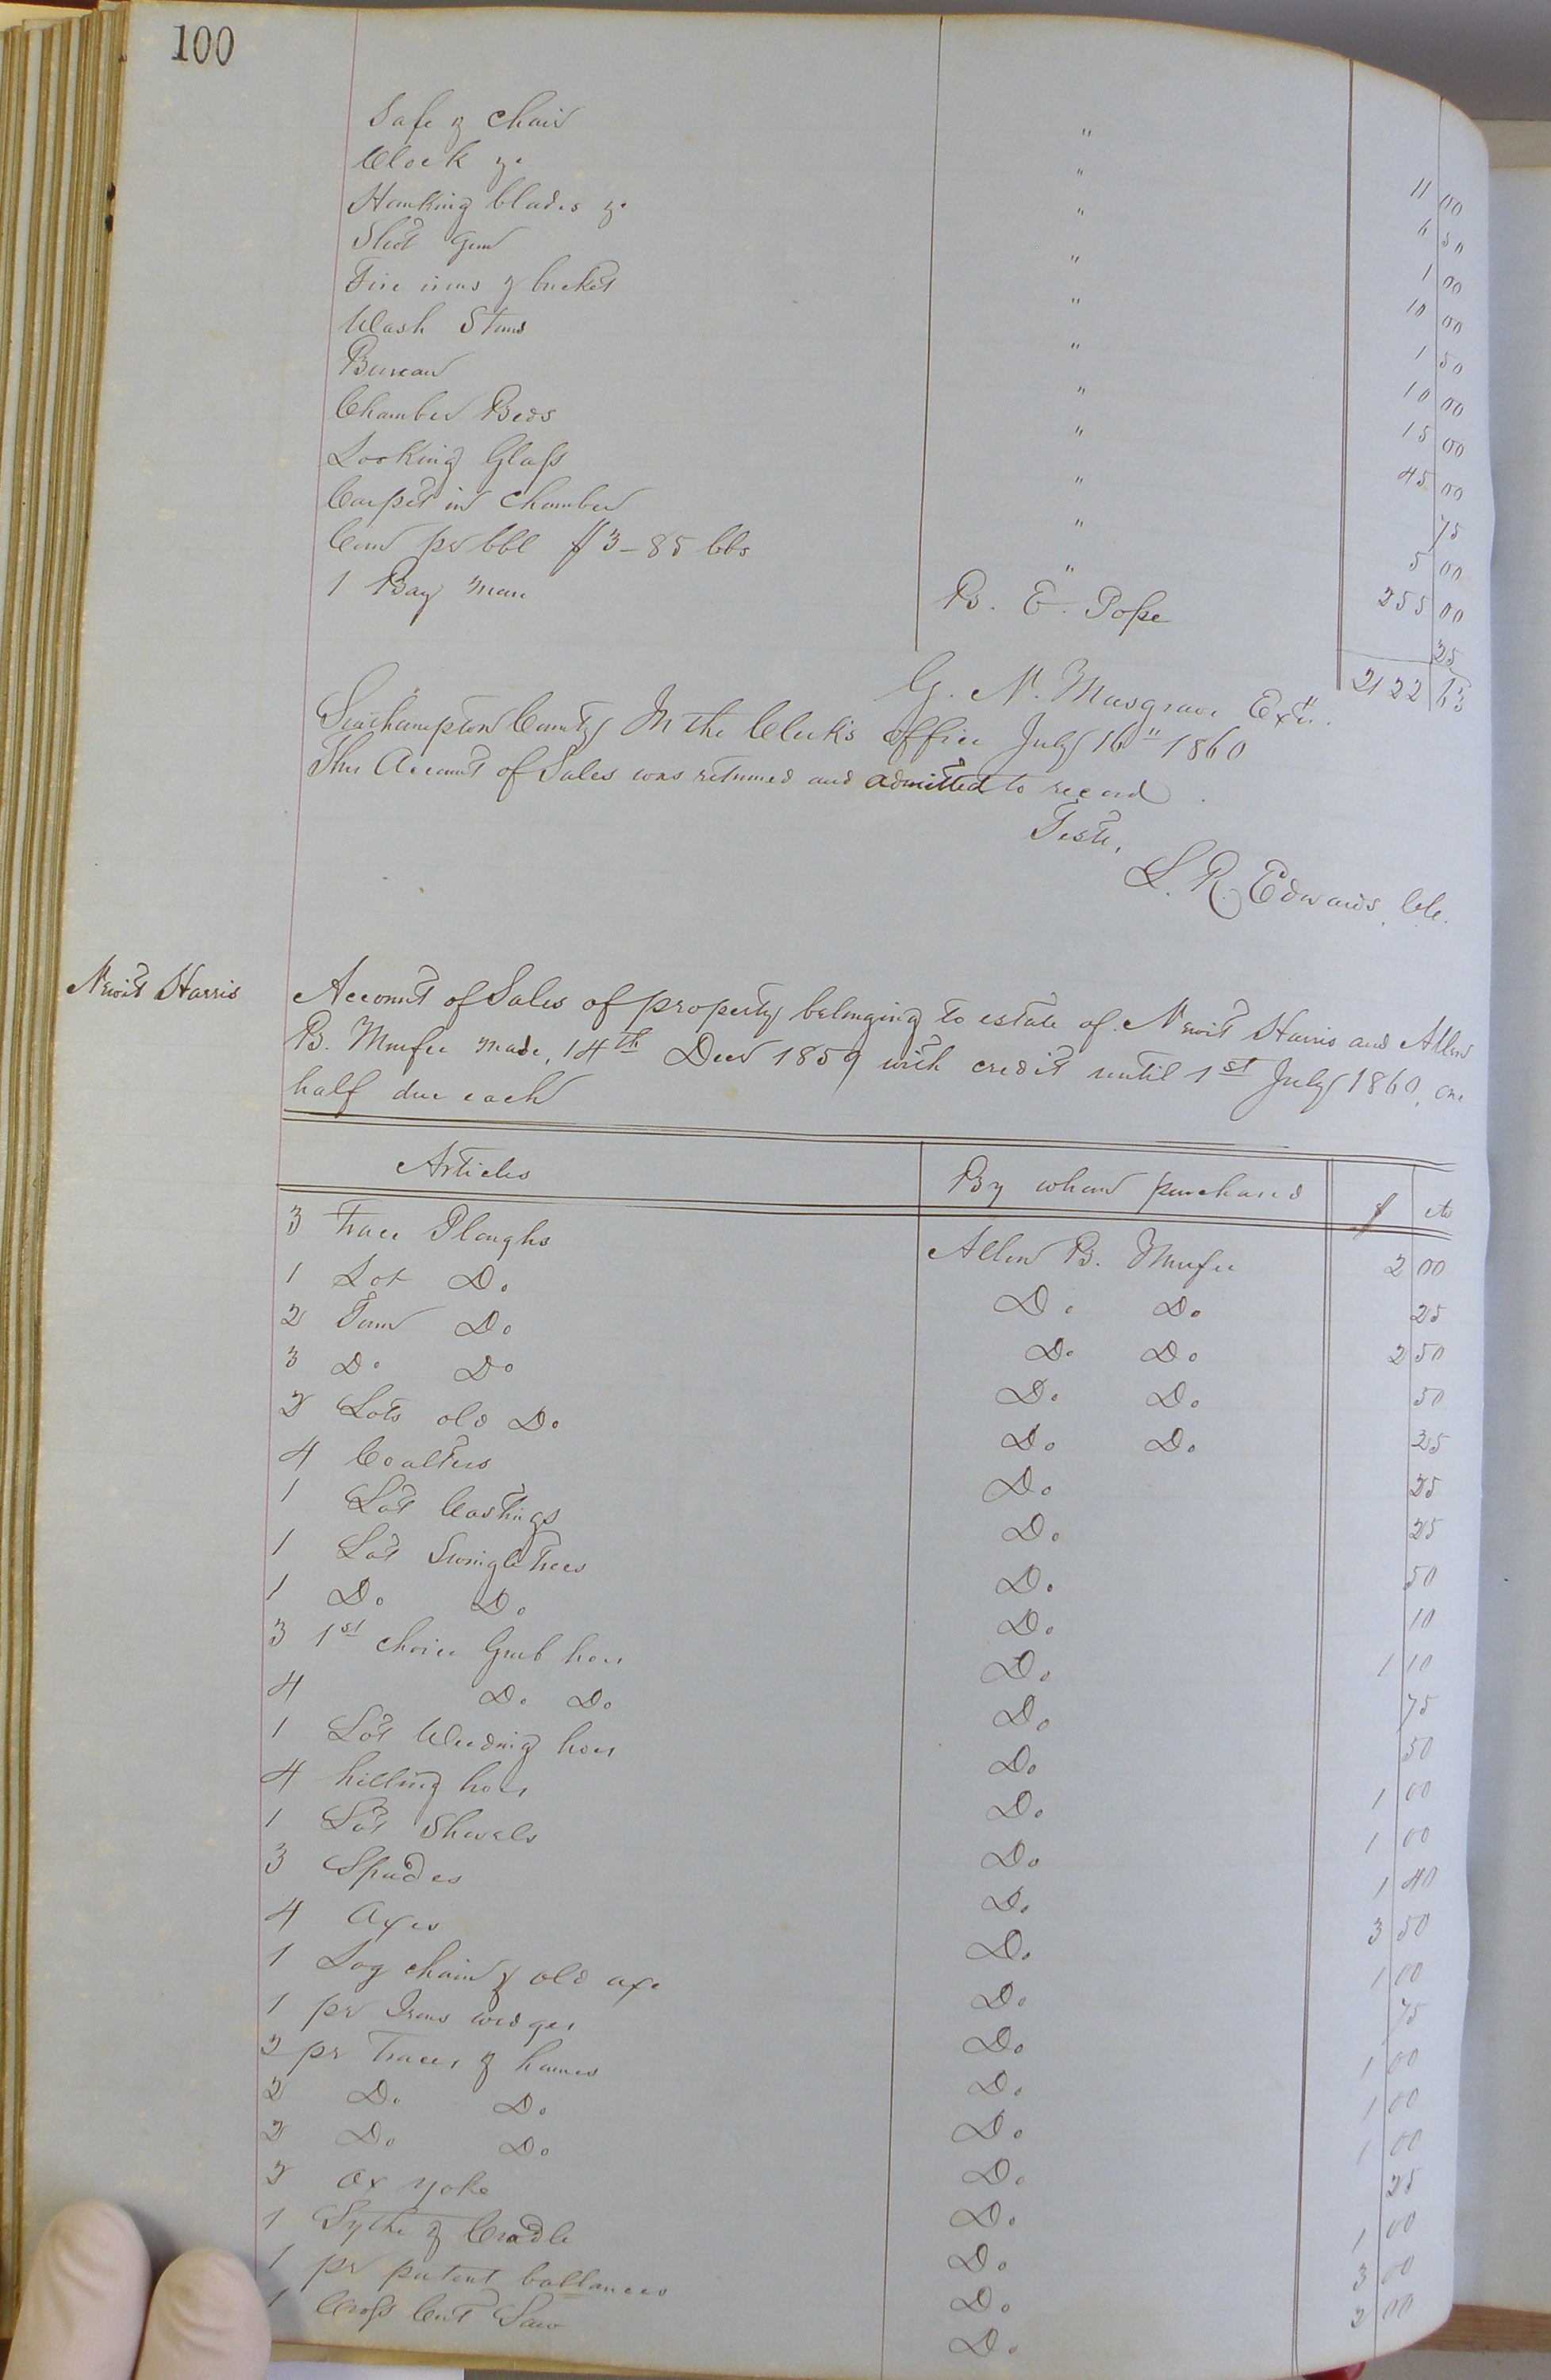 100
Safe & Chair " 11 00
Clock &c " 6 50
Hawking blades &c " 1 00
Shot Gun " 10 00
Fire irons & bucket " 1 50
Wash Stand " 10 00
Bureau " 15 00
Chamber Beds " 45 00
Looking Glass " 75
Carpet in Chamber " 5 00
Corn pr bbl $3-85 bbs " 255 00
1 Bay mare B. E. Pope 25
2122 63
G. N. Musgrave Extr.
Southampton County In the Clerk's Office July 16" 1860
This Account of Sales was returned and admitted to record.
Teste,
L. R. Edwards, Clk.
Newit Harris
Account of Sales of property belonging to estate of Newit Harris and Allen
B. Murfee made, 14th Decr 1859 with credit until 1st July 1860, one
half due each
Articles By whom purchased $ cts
3 Trace Ploughs Allen B. Murfee 2 00
1 Lot Do Do Do 25
2 Turn Do Do Do 2 50
3 Do Do Do Do 50
2 Lots old Do Do Do 25
4 Coalters Do 25
1 Lot Castings Do 25
1 Lot Swingletrees Do 50
1 Do Do Do 10
3 1st choice Grub hoes Do 1 10
4 Do Do Do 75
1 Lot Weeding hoes Do 50
4 hilling hoes Do 1 00
1 Lot Shovels Do 1 00
3 Spades Do 1 40
4 Axes Do 3 50
1 Log chain & old axe Do 1 00
1 pr Iron wedges Do 75
2 pr Traces & hames Do 1 00
2 Do Do Do 1 00
2 Do Do Do 1 00
2 Ox yoke Do 25
1 Sythe & Cradle Do 1 00
1 pr patent ballances Do 3 00
1 Cross Cut Saw Do 2 00